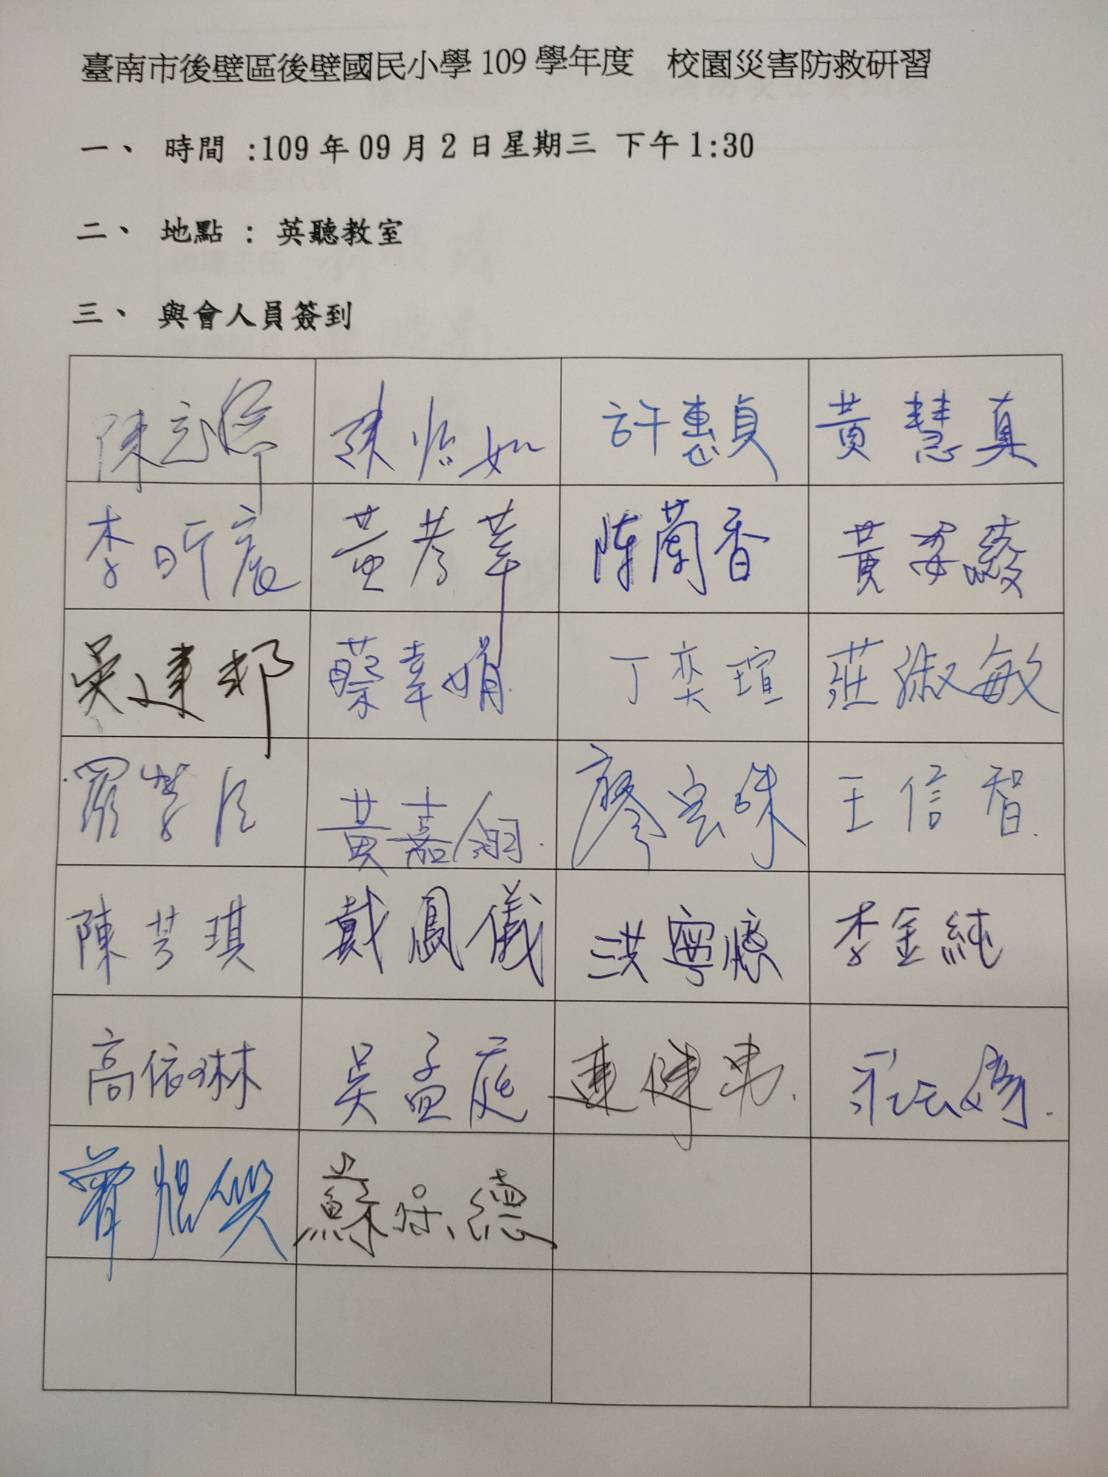 臺南市後壁區後壁國民小學 109 學年度　校園災害防救研習
一、 時間 :109 年 09 月 2 日星期三 下午 1:30
二、 地點 : 英聽教室
三、 與會人員簽到
陳 陳怡如 許惠貞 黃慧真
李昕宸 黃 陳蘭香 黃姿綾
吳建邦 蔡幸娟 丁奕瑄 莊淑敏
羅 黃嘉翎 廖宏 王信智
陳芳琪 戴鳳儀 洪寧 李金純
高依琳 吳孟庭 連健
蘇 德